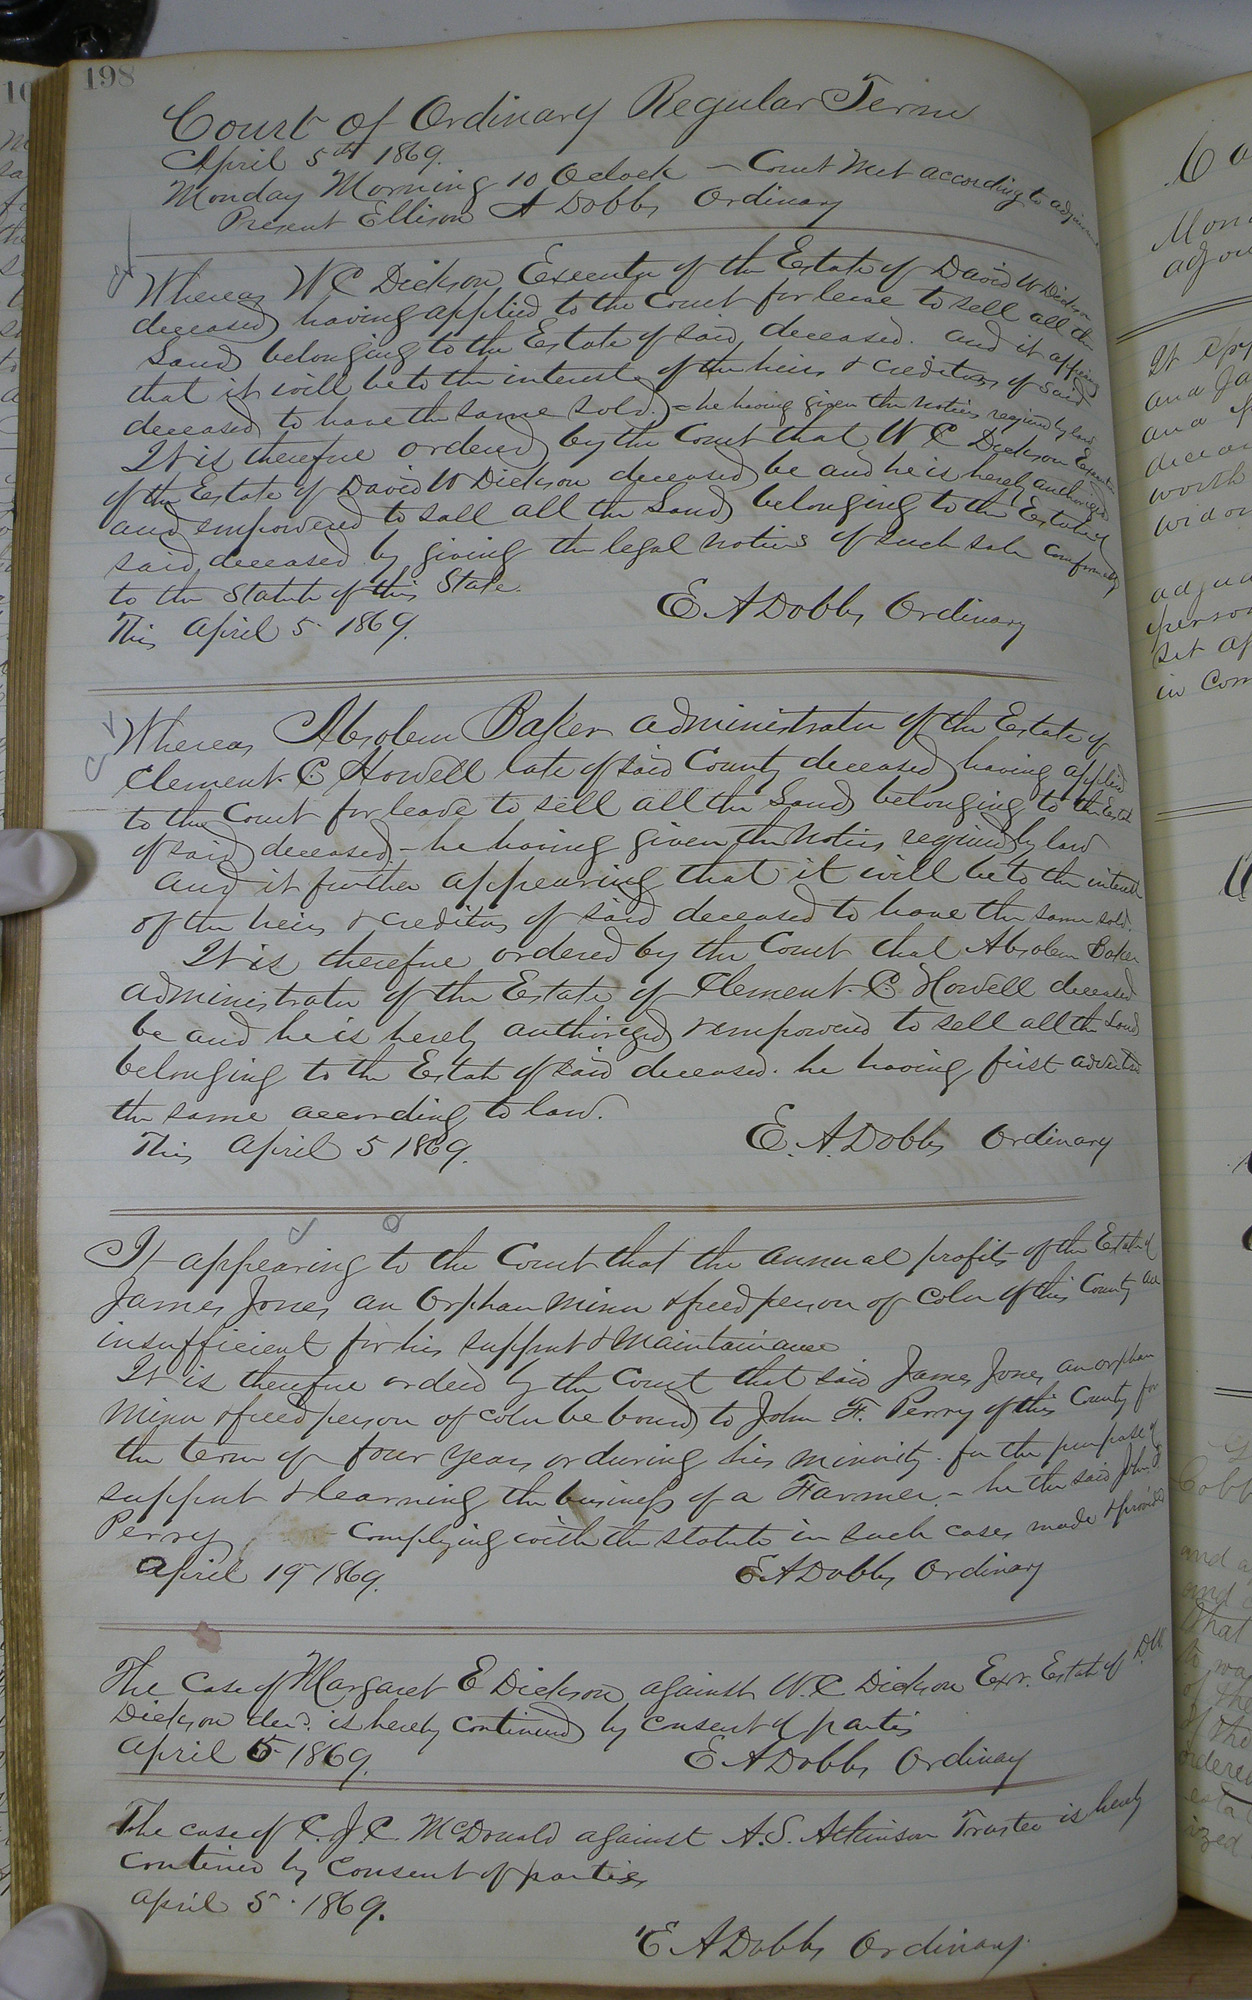 198
Court of Ordinary Regular Term
April 5th 1869.
Monday Morning 10 Oclock – Court Met according to adjournment
Present Ellison A Dobbs Ordinary
Whereas W C Dickson Executor of the Estate of David W Dickson
deceased having applied to the Court for leave to sell all the
Land belonging to the Estate of said deceased. and it appearing
that it will be to the interest of the heirs & creditors of said
deceased to have the same sold. – he having given the notice required by law
It is therefore ordered by the Court that W C Dickson Executor
of the Estate of David W Dickson deceased be and he is hereby authorized
and empowered to sell all the Land belonging to the Estate of
said deceased by giving the legal notices of such sale conformably
to the Statute of this State.
This April 5 1869.
E A Dobbs Ordinary
Whereas Absolem Baker administrator of the Estate of
Clement C. Howell late of said County deceased having applied
to the Court for leave to sell all the Land belonging to the Estate
of said deceased – he having given the notice required by law
and it further appearing that it will be to the interest
of the heirs & creditors of said deceased to have the same sold.
It is therefore ordered by the Court that Absolem Baker
administrator of the Estate of Clement C. Howell deceased
be and he is hereby authorized & empowered to sell all the Land
belonging to the Estate of said deceased. he having first advertised
the same according to law.
This April 5 1869.
E. A. Dobbs Ordinary
It appearing to the Court that the annual profits of the Estate of
James Jones an Orphan Minor & freed person of color of this County are
insufficient for his support & Maintainance
It is therefore ordered by the Court that said James Jones an orphan
Minor & freed person of color be bound to John F. Perry of this County for
the term of four years or during his minority. for the purpose of
support & learning the business of a Farmer. – he the said John F
Perry complying with the statute in such cases made & provided
April 19 1869.
E A Dobbs Ordinary
The case of Margaret E Dickson against W. C Dickson Exr. Estate of D. W
Dickson decd. is hereby continued by consent of parties
April 5 1869.
E A Dobbs Ordinary
The case of C. J. C. McDonald against A. S. Atkinson Trustee is hereby
continued by consent of parties
April 5. 1869.
E A Dobbs Ordinary.